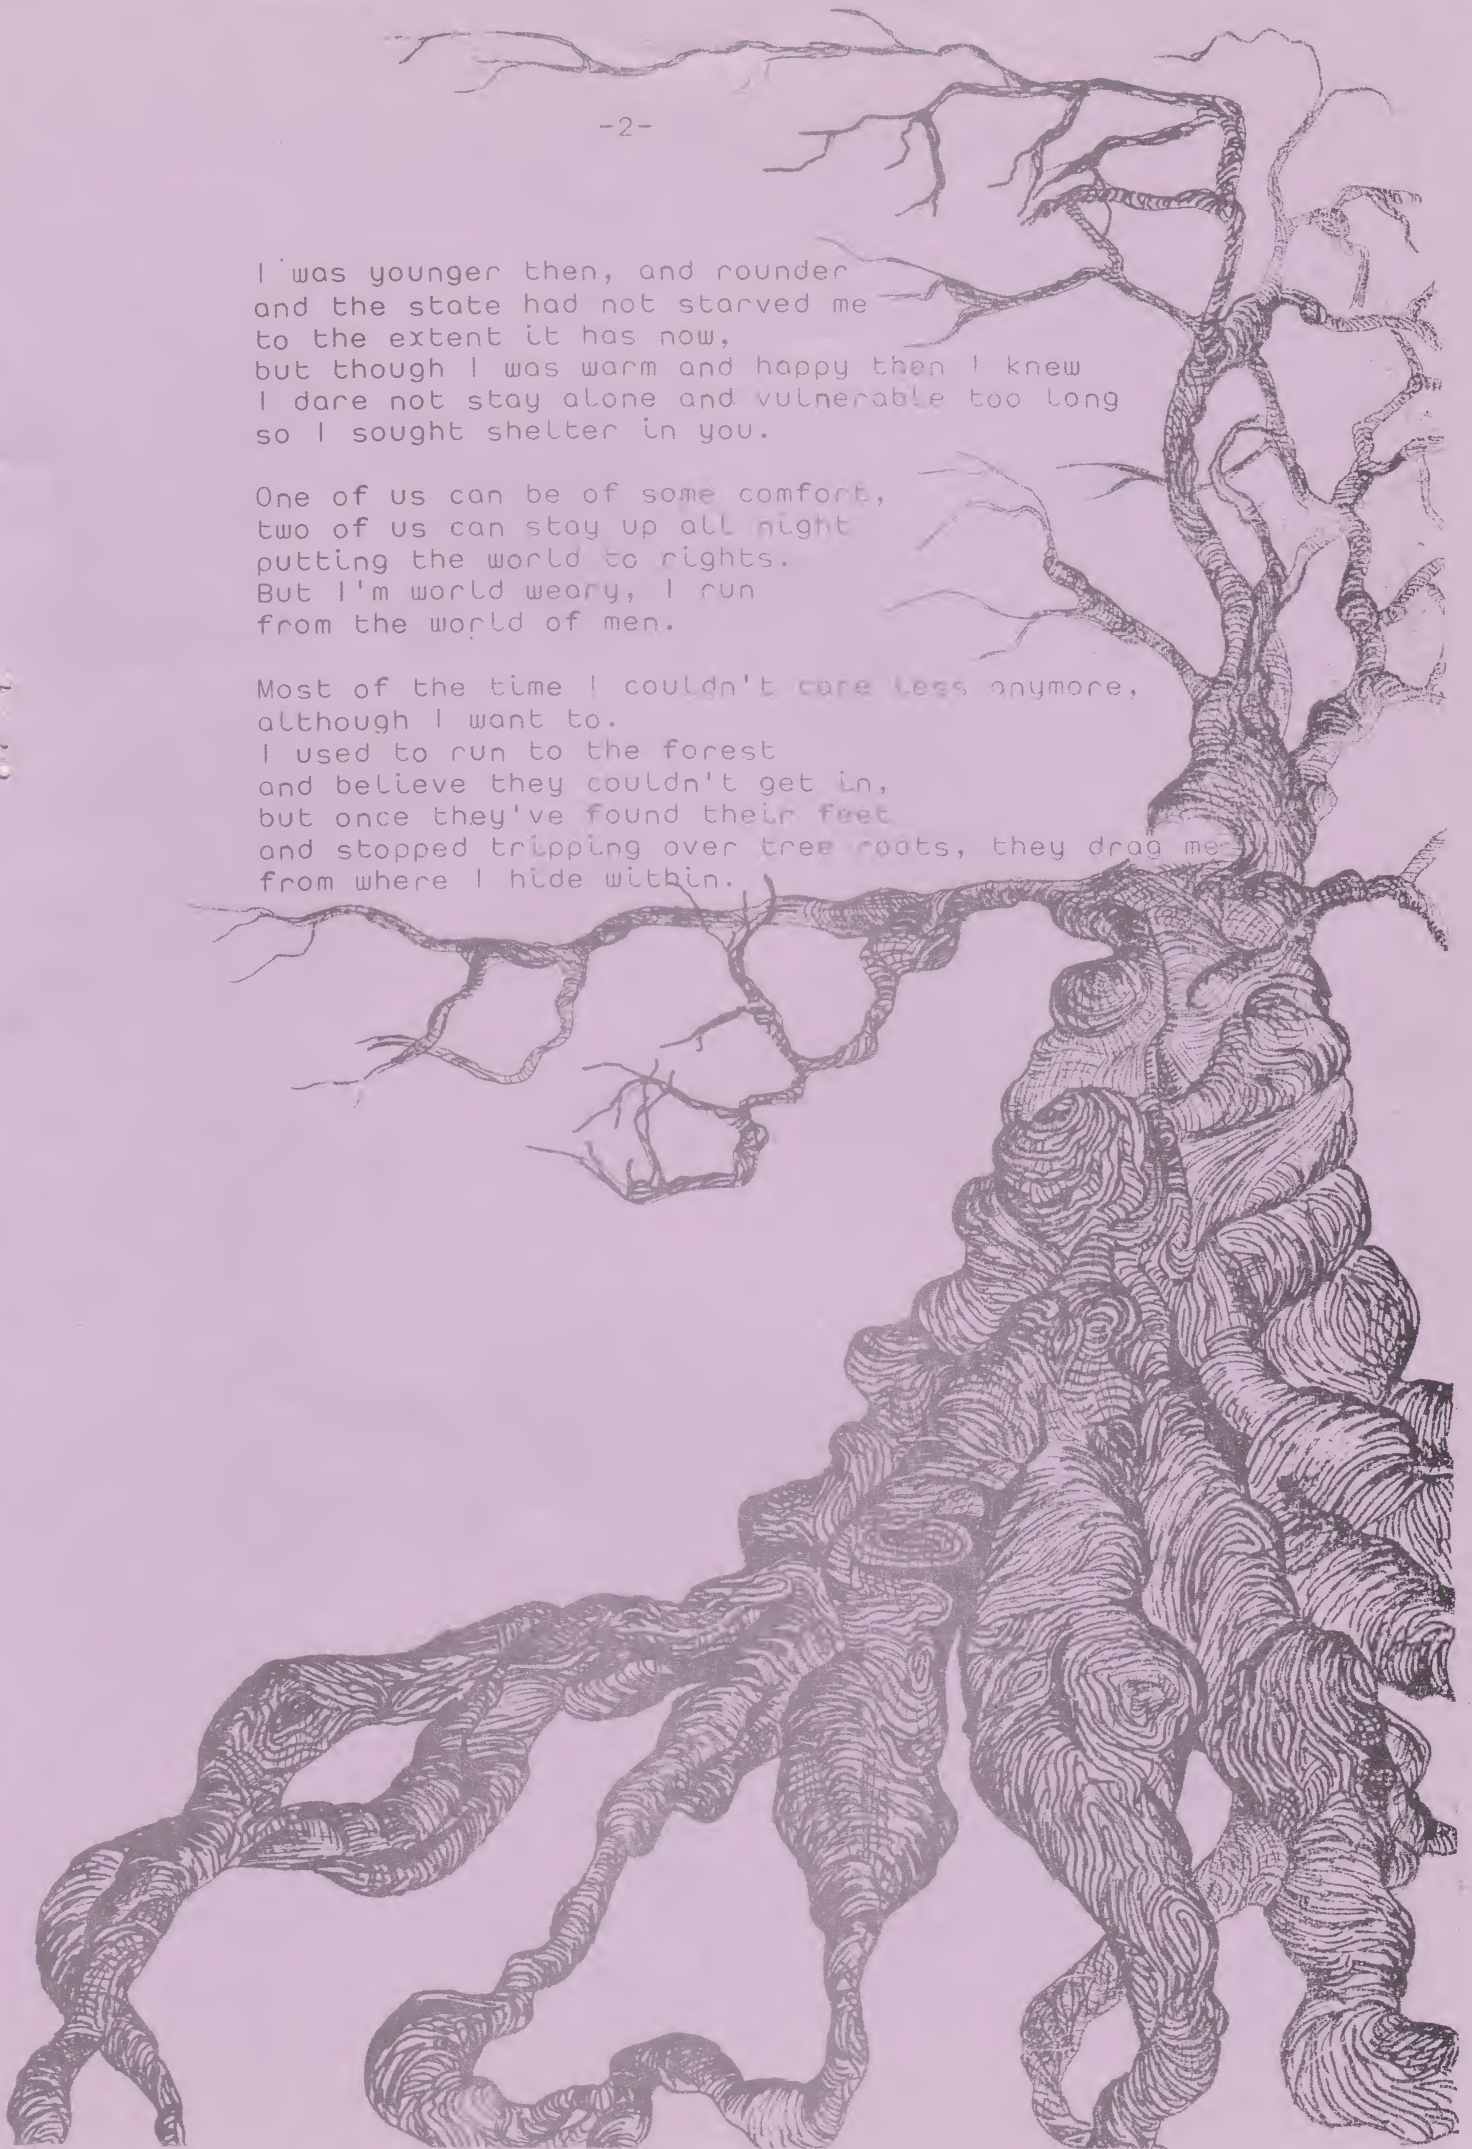 -2-
I was younger then, and rounder
and the state had not starved me
to the extent it has now,
but though I was warm and happy then I knew
I dare not stay alone and vulnerable too long
so I sought shelter in you.
One of us can be of some comfort,
two of us can stay up all night
putting the world to rights.
But I'm world weary, I run
from the world of men.
Most of the time I couldn't care less anymore,
although I want to.
I used to run to the forest
and believe they couldn't get in,
but once they've found their feet
and stopped tripping over tree roots, they drag me
from where I hide within.